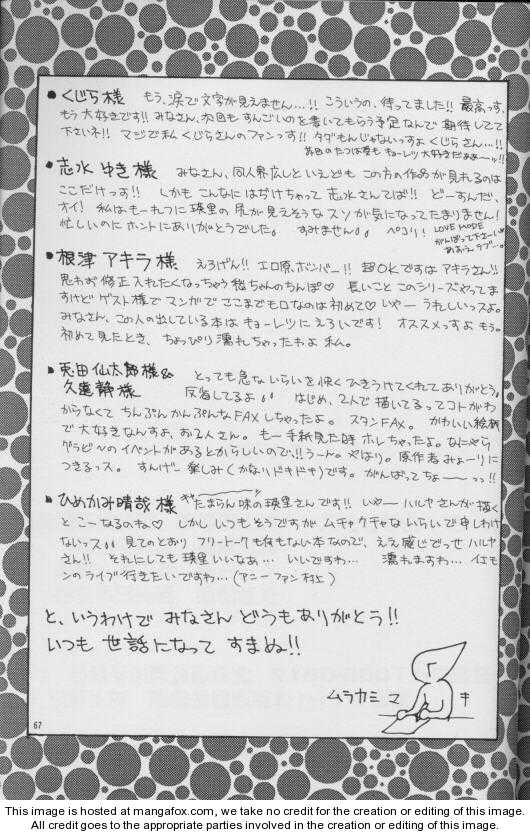 ● くじら様 もう、涙で文字が見えません…!! こういうの、待ってました!! 最高っす、
もう大好きです!! みなさん、次回もすんごいのを書いてもらう予定なんで期待してて
下さいネ!! マジで私くじらさんのファンっす!! タダもんじゃないっすよくじらさん…!!
● 志水ゆき様 みなさん、同人界広しといえどもこの方の作品が見れるのは
ここだけっす!! しかもこんなにはぢけちゃって志水さんてば!! どーすんだ、
オイ! 私はもーれつに珠里の尻が見えそうなスソが気になってたまりません!
忙しいのにホントにありがとうでした。 すみません ペコリ! LOVE MODE
がんばって下さーい
● 根津アキラ様 えろげん!! エロ原、ボンバー!! 超OKですはアキラさん!!
思わず修正入れたくなっちゃう稔ちゃんのちんぽ♡ 長いことこのシリーズやってま
すけどゲスト様でマンガでここまでモロなのは初めて♡ いやー うれしいっスよ。
みなさん、この人の出している本はキョーレツにえろいです! オススメっすよもう。
初めて見たとき、ちょっぴり濡れちゃったわよ私。
● 兎田仙太郎様&
久遠静様 とっても急ないらいを快くひきうけてくれてありがとう。
反省してるよ はじめ、2人で描いてるってコトがわ
からなくて ちんぷんかんぷんなFAXしちゃったよ。 スタンFAX。 かわいい絵柄
で大好きなんすよ、お2人さん。 もー手紙見た時ホレちゃったよ。なにやら
グラビべのイベントがあるとからしいので!!うーん。やはり。原作者みょーりに
つきるっス。 すんげー楽しみ(かなりドキドキ)です。がんばってちょーーっっ!!
● ひめかみ晴哉様 たまらん味の珠里さんです!! いやー ハルヤさんが描く
と こーなるのね♡ しかしいつもそうですが ムチャクチャないらいで申しわけ
ないっス 見てのとおり フリートークも何もない本なので、ええ感じでっせハルヤ
さん!! それにしても 珠里いいなぁ… いいですわ… 濡れますわ… イエモ
ンのライブ行きたいですわ…(アニーファン村上)
と、いうわけで みなさん どうもありがとう!!
いつも 世話になって すまぬ!!
ムラカミ マ キ
67
This image is hosted at mangafox.com, we take no credit for the creation or editing of this image.
All credit goes to the appropriate parties involved in the creation or editing of this image.